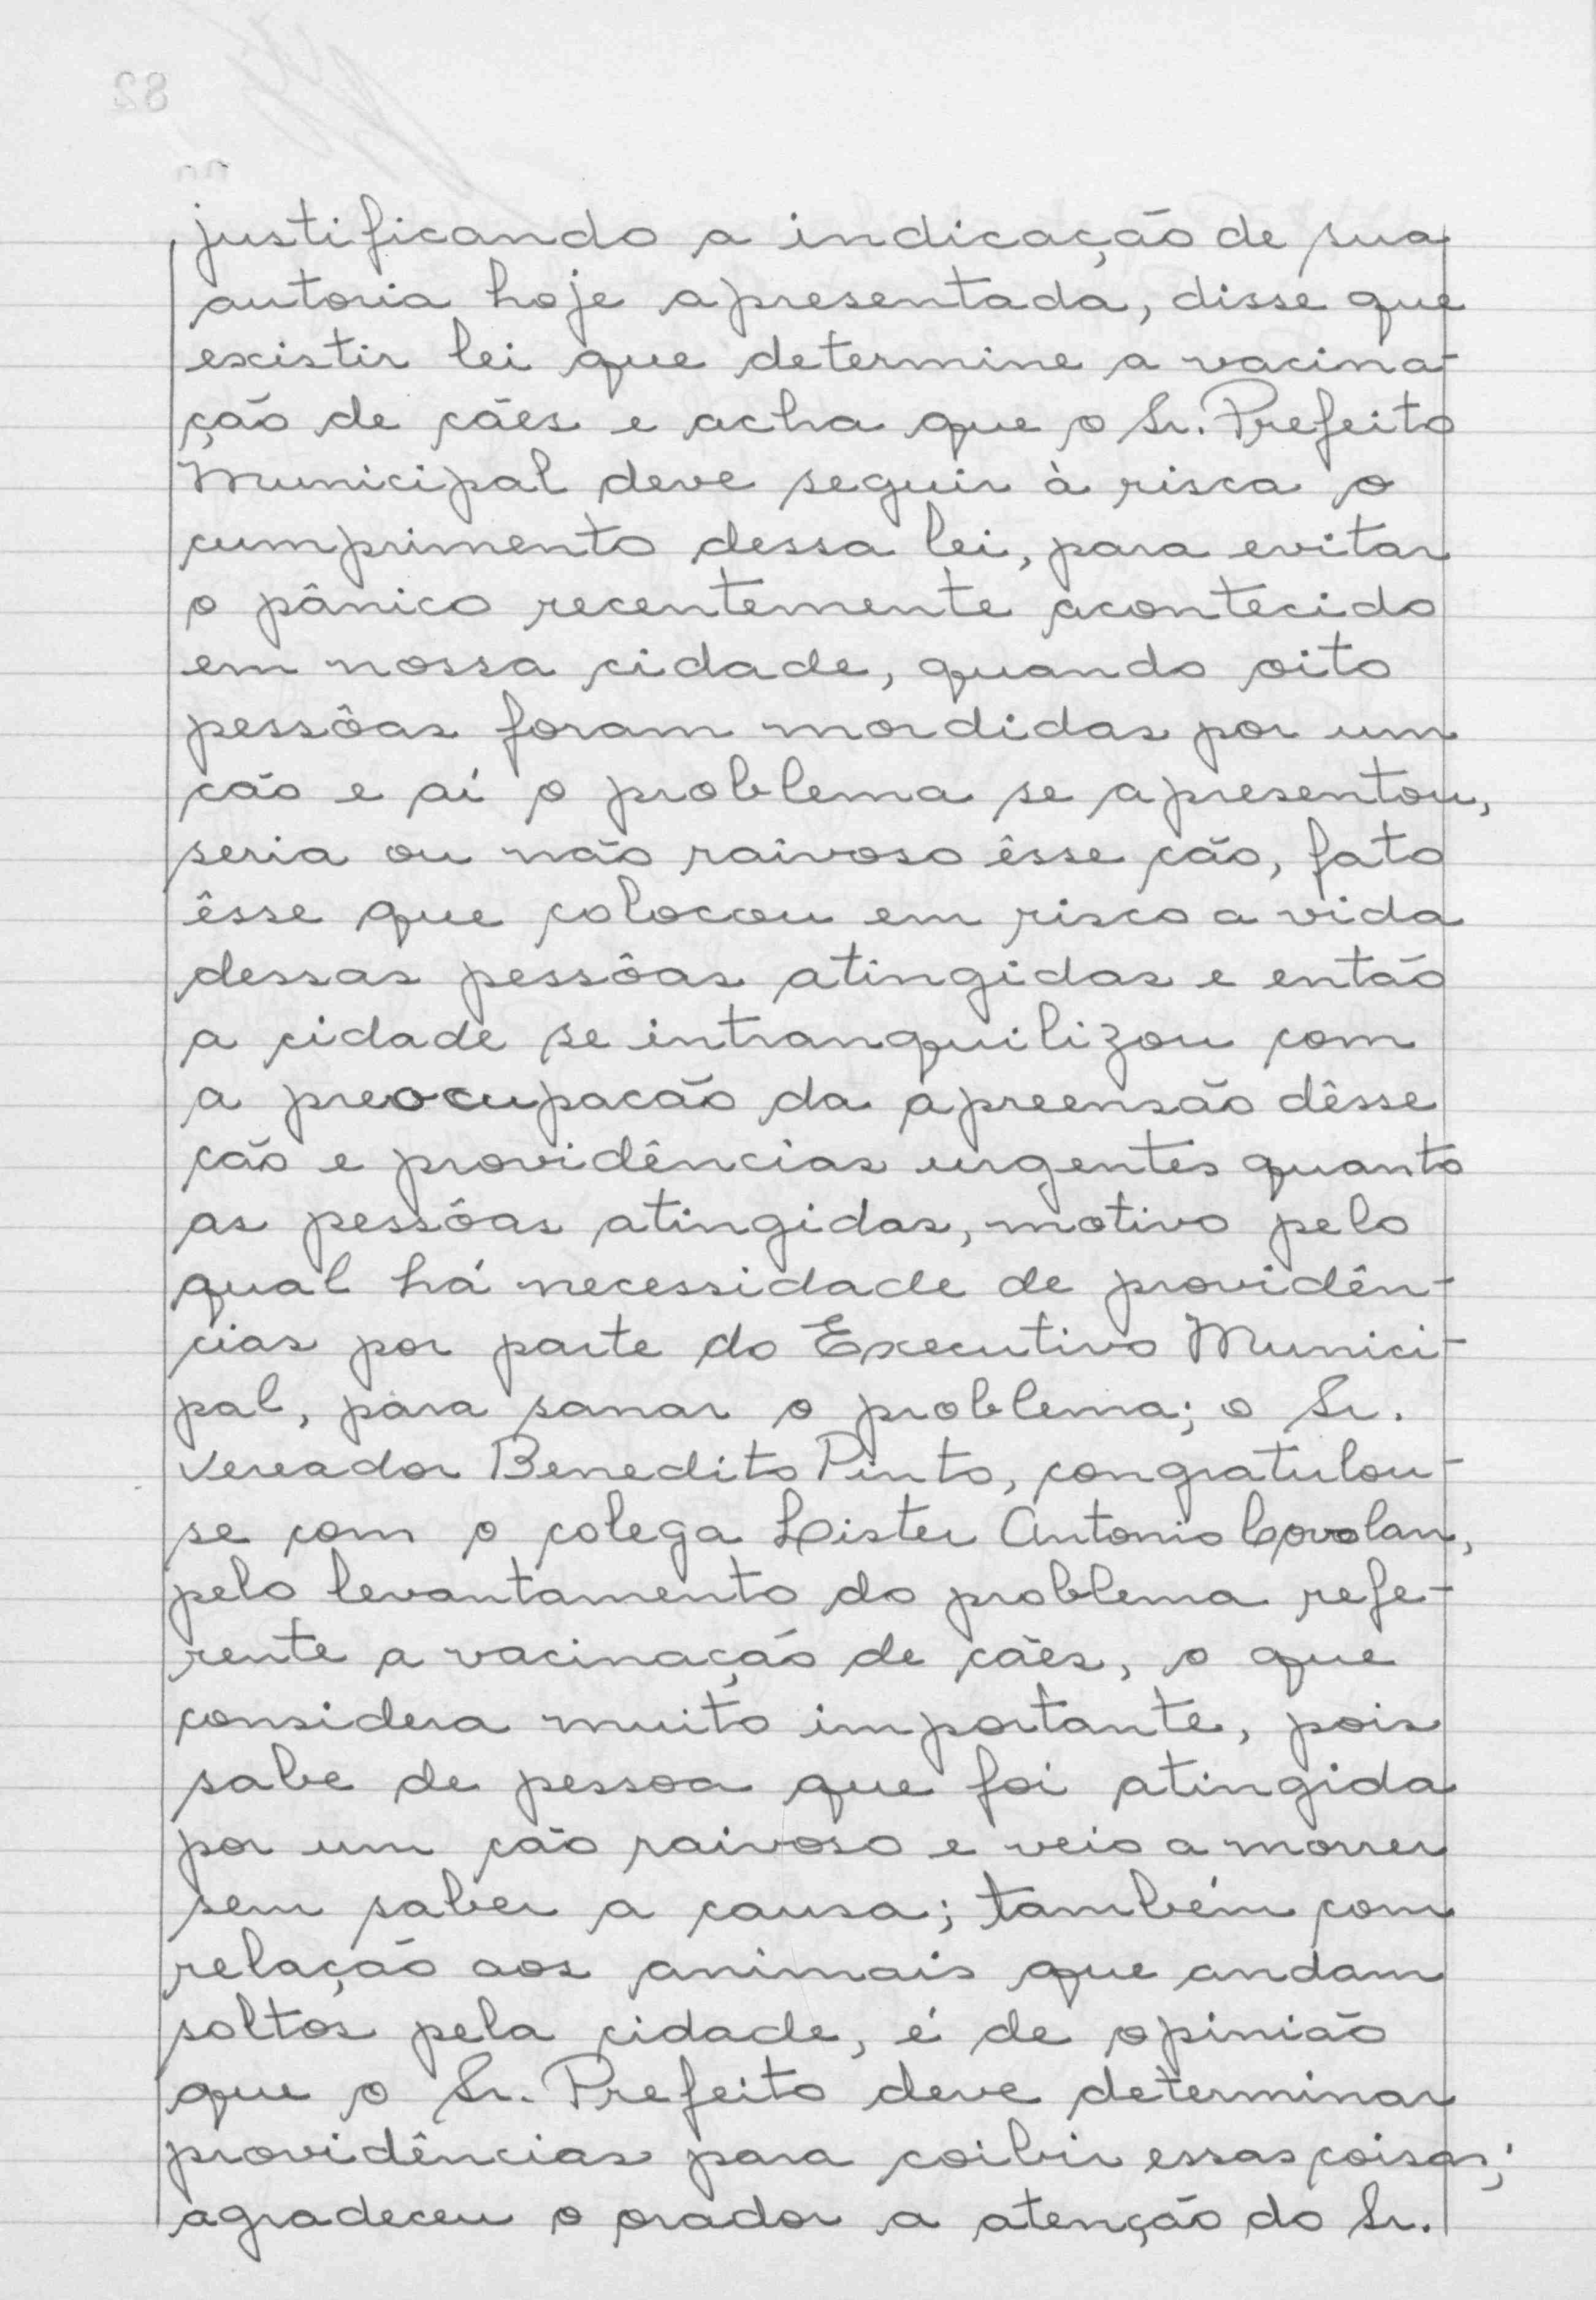 justificando a indicação de sua
autoria hoje apresentada, disse que
existir lei que determine a vacina-
ção de cães e acha que o Sr. Prefeito
Municipal deve seguir à risca o
cumprimento dessa lei, para evitar
o pânico recentemente acontecido
em nossa cidade, quando oito
pessôas foram mordidas por um
cão e aí o problema se apresentou,
seria ou não raivoso êsse cão, fato
êsse que colocou em risco a vida
dessas pessôas atingidas e então
a cidade se intranquilizou com
a preocupacão da apreensão dêsse
cão e providências urgentes quanto
as pessôas atingidas, motivo pelo
qual há necessidade de providên-
cias por parte do Executivo Munici-
pal, para sanar o problema; o Sr.
Vereador Benedito Pinto, congratulou-
se com o colega Lister Antonio Covolan,
pelo levantamento do problema refe-
rente a vacinação de cães, o que
considera muito importante, pois
sabe de pessoa que foi atingida
por um cão raivoso e veio a morrer
sem saber a causa; também com
relação aos animais que andam
soltos pela cidade, é de opinião
que o Sr. Prefeito deve determinar
providências para coibir essas coisas;
agradeceu o orador a atenção do Sr.